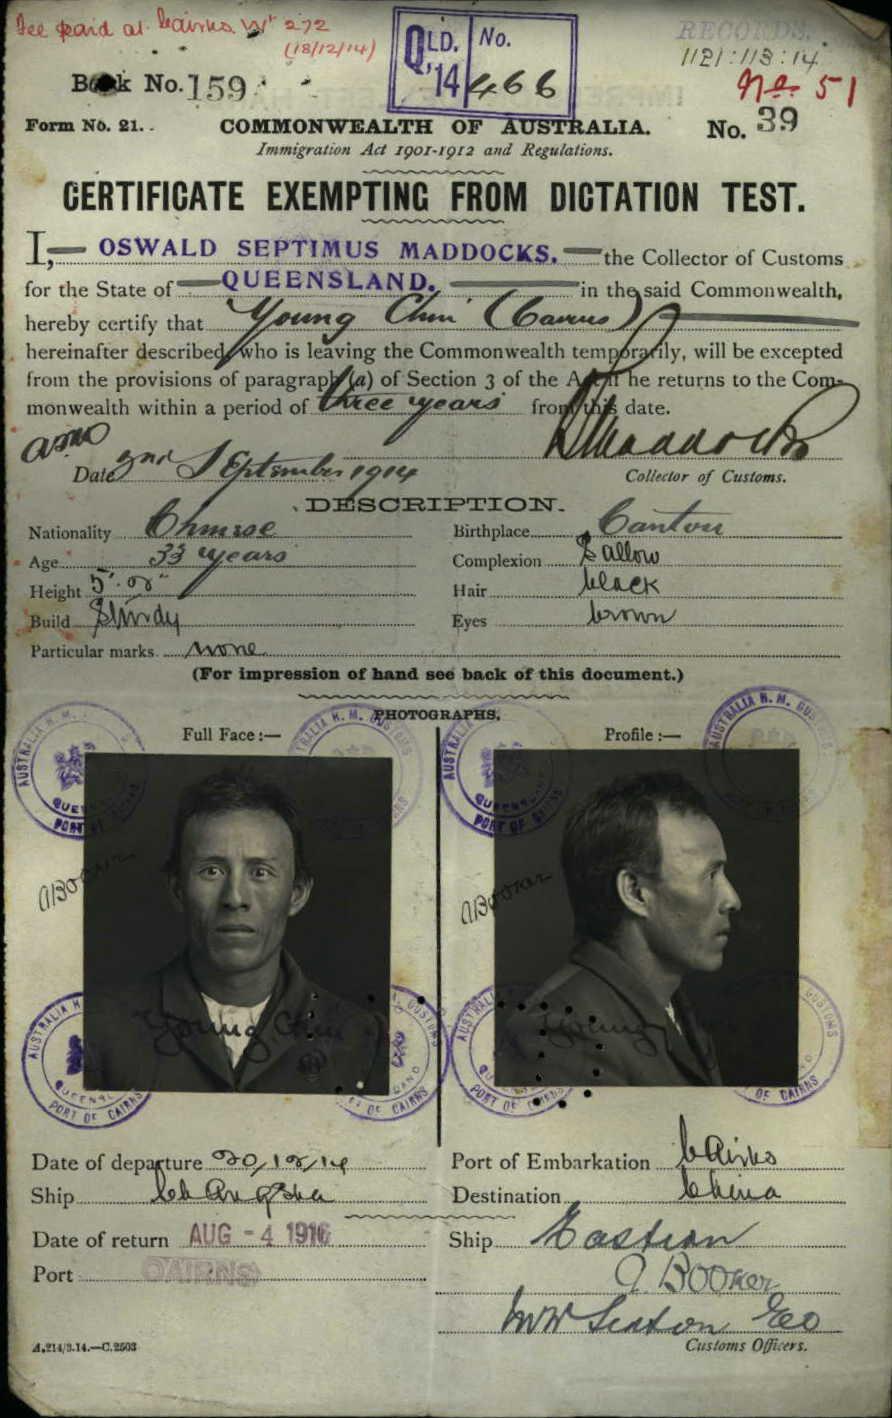 Fee paid at Cairns Wt 272
(18/12/14)
QLD. No.
'14 466
RECORDS.
1121:113:14
No 51
Book No. 159
Form No. 21.
COMMONWEALTH OF AUSTRALIA.
No. 39
Immigration Act 1901-1912 and Regulations.
CERTIFICATE EXEMPTING FROM DICTATION TEST.
I, OSWALD SEPTIMUS MADDOCKS, the Collector of Customs
for the State of QUEENSLAND. in the said Commonwealth,
hereby certify that Young Chin (Cairns)
hereinafter described, who is leaving the Commonwealth temporarily, will be excepted
from the provisions of paragraph (a) of Section 3 of the Act if he returns to the Com-
monwealth within a period of three years from this date.
Date 2nd September 1914
Maddocks
Collector of Customs.
DESCRIPTION.
Nationality Chinese Birthplace Canton
Age 33 years Complexion Sallow
Height 5'. 8" Hair black
Build Sturdy Eyes brown
Particular marks none
(For impression of hand see back of this document.)
PHOTOGRAPHS.
Full Face :— Profile :—
AUSTRALIA H. M. CUSTOMS
QUEENSLAND
PORT OF CAIRNS
A Booker
A Booker
Young Chin
Young
Date of departure 20/12/14 Port of Embarkation Cairns
Ship Changsha Destination China
Date of return AUG - 4 1916 Ship Eastern
Port CAIRNS
A. Booker
Customs Officers.
A.214/3.14.—C.2503